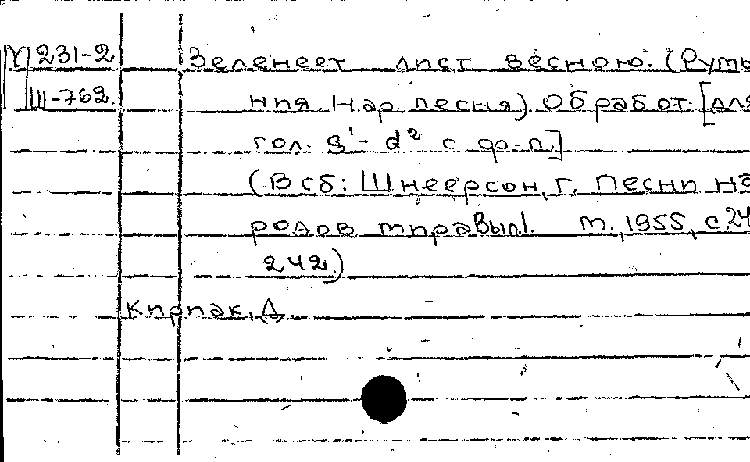 М 231-2 Зеленеет лист весною. (Румы
III-762. ния нар песня). Обработ. [для
гол. g¹- d² с фо-п.]
(В сб: Шнеерсон, Г. Песни на
родов мира Вып.1. М., 1955, с.24
242.)
Кирпак, Д